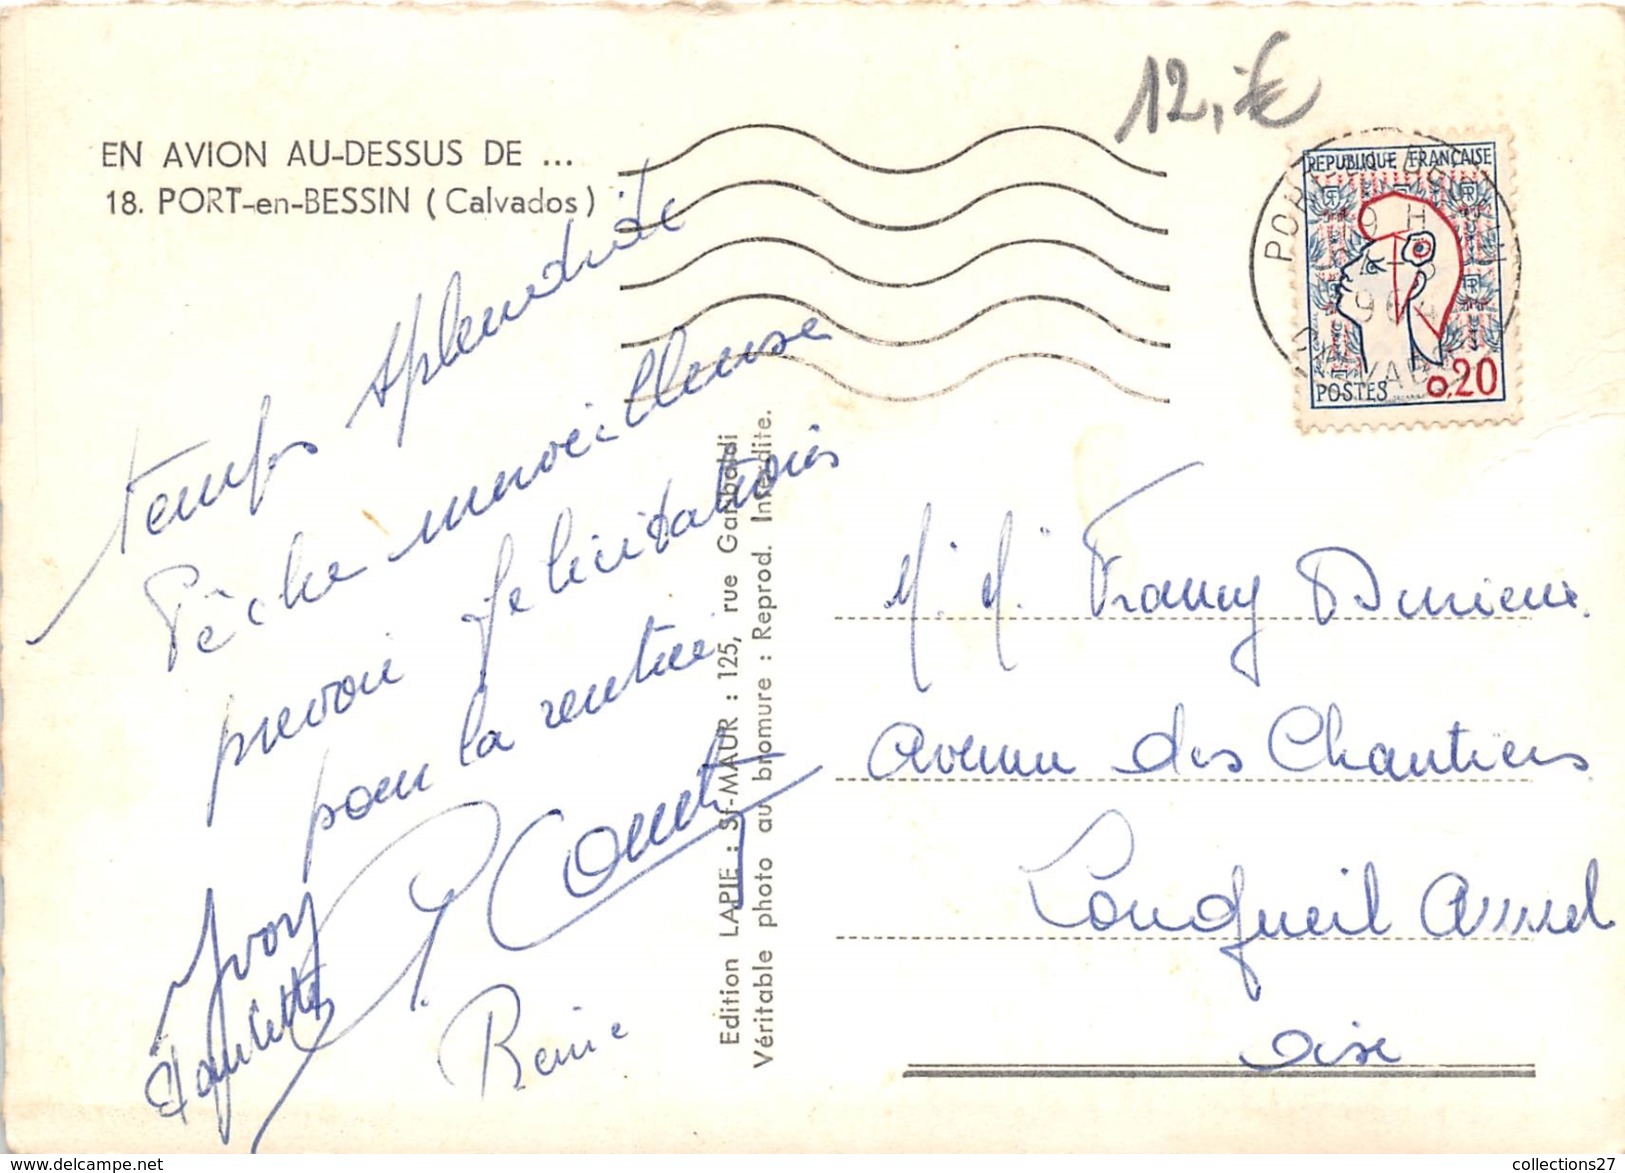 EN AVION AU-DESSUS DE ...
18. PORT-en-BESSIN (Calvados)
12,-€
REPUBLIQUE FRANÇAISE
POSTES
0,20
19 H
1964
temps splendide
Pêche merveilleuse
prevoir felicitations
pour la rentrée
Yvon
Paulette
Reine
Edition LAPIE : St-MAUR : 125, rue Garibaldi
Véritable photo au bromure : Reprod. Interdite.
M. M. Francy Durieux
Avenue des Chantiers
Longueil Annel
Oise
collections27